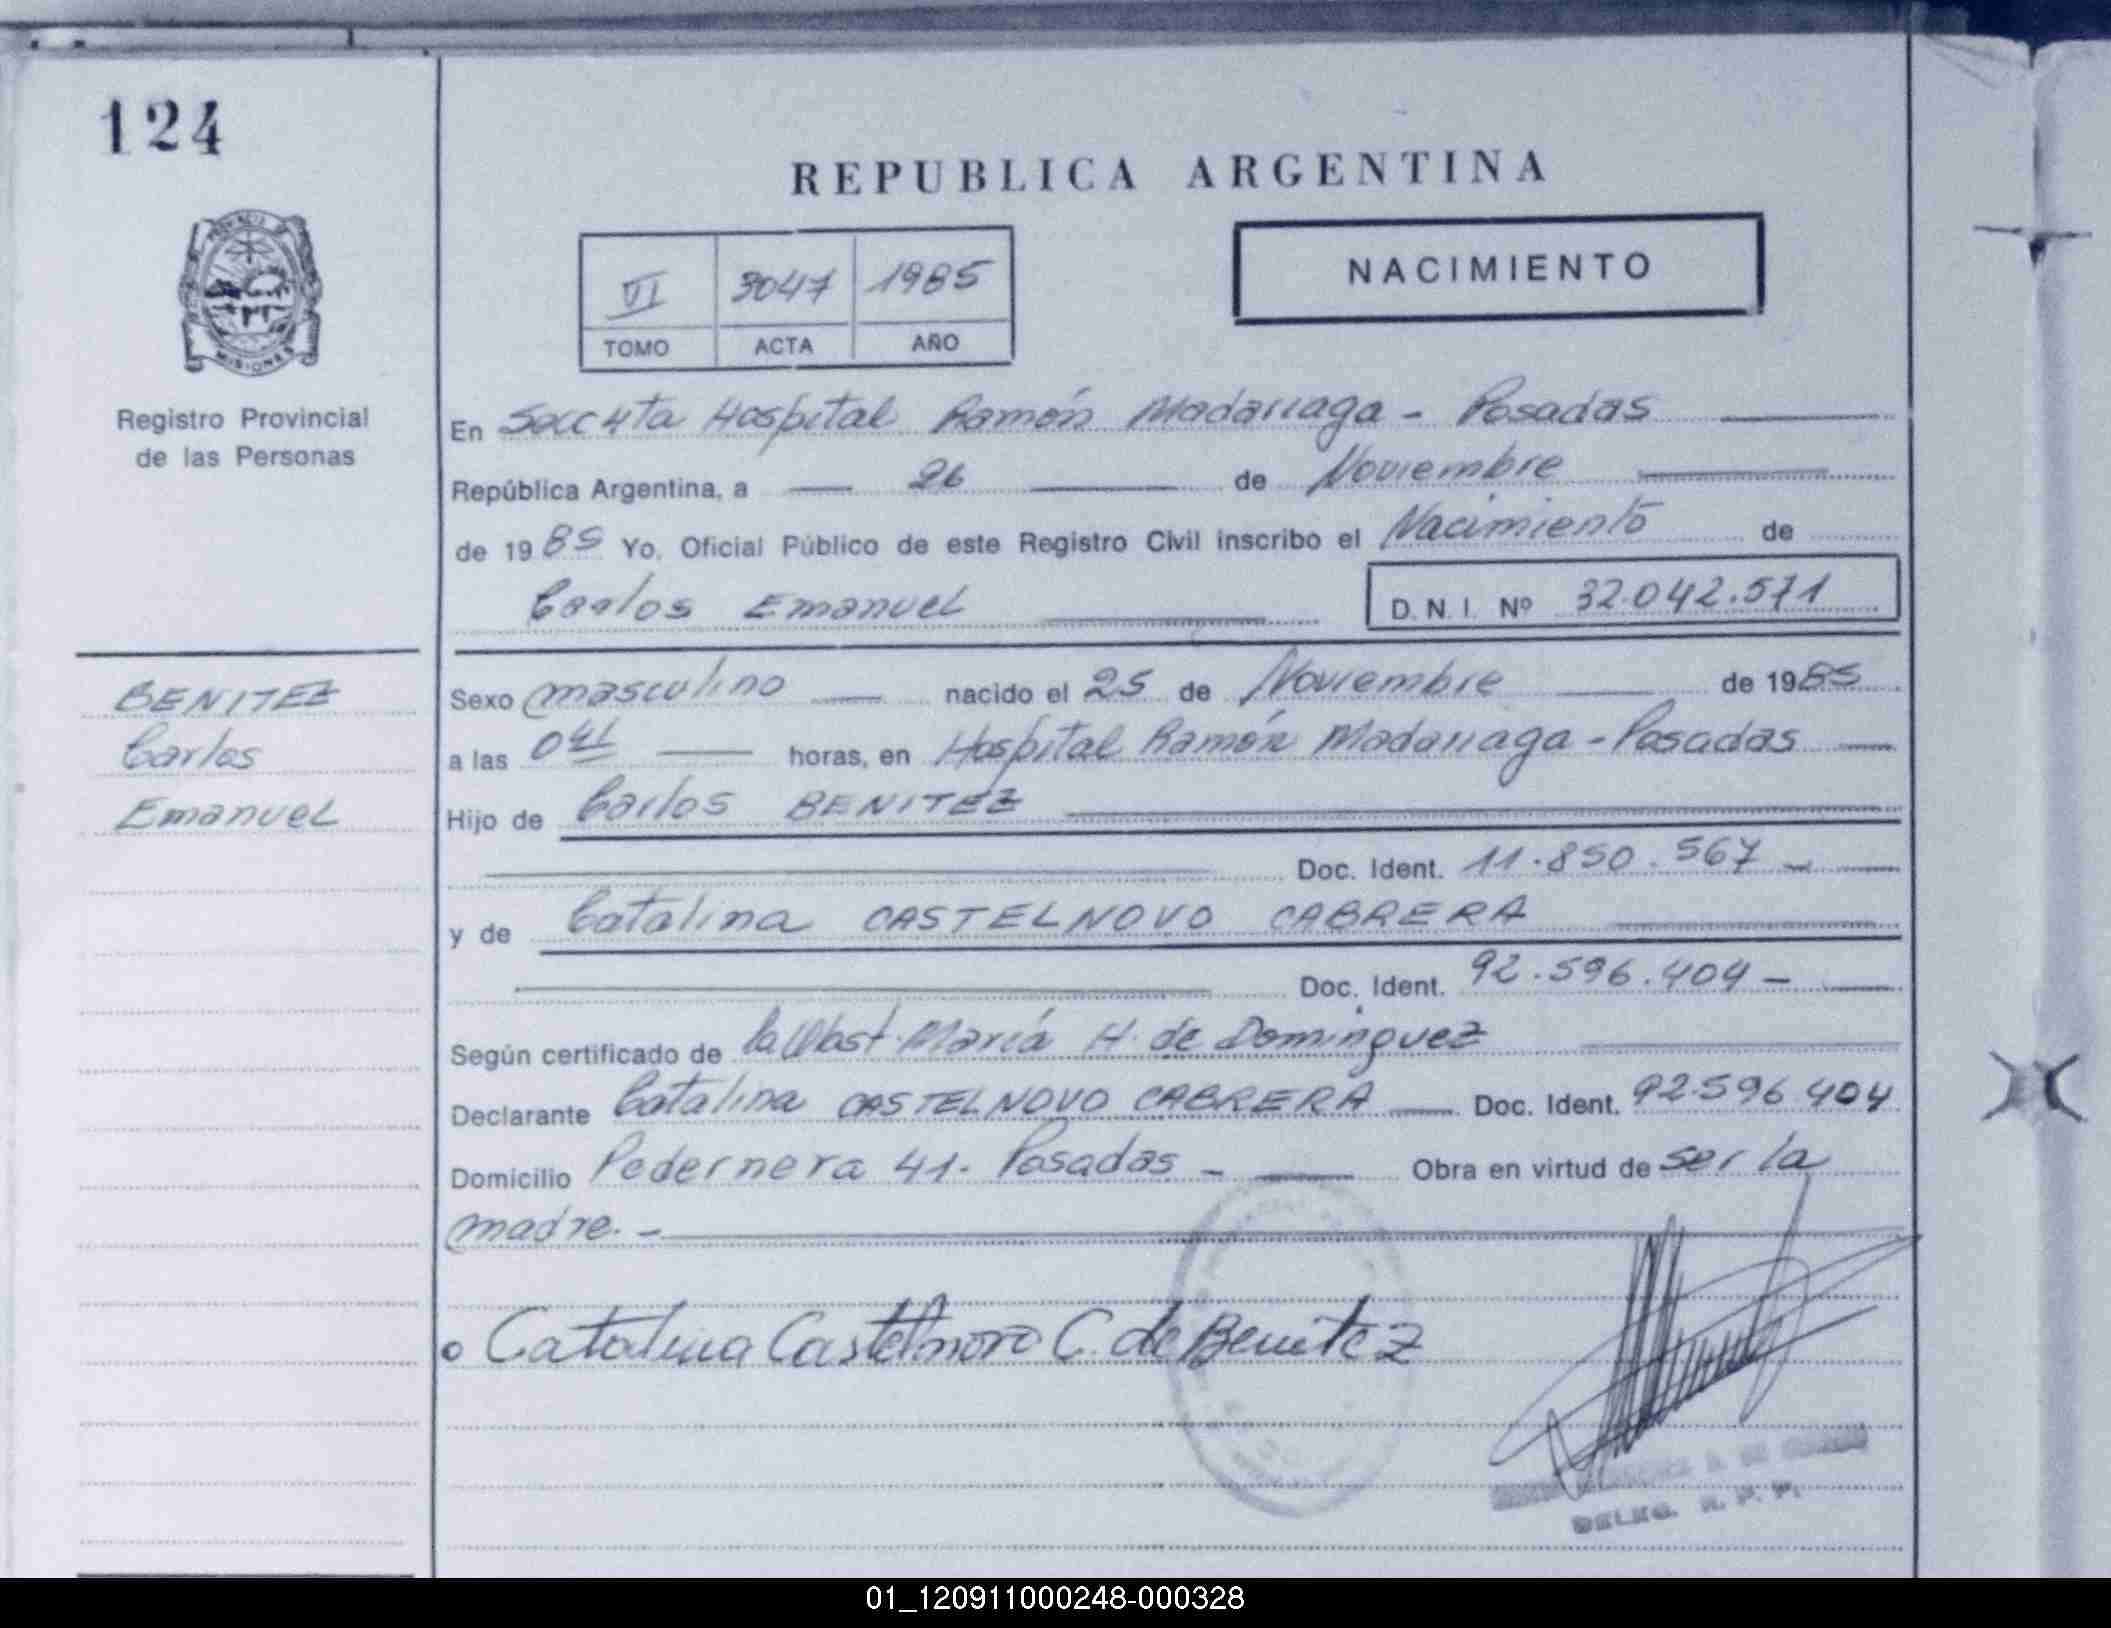 124
REPUBLICA ARGENTINA
NACIMIENTO
VI 3047 1985
TOMO ACTA AÑO
MISIONES
Registro Provincial
de las Personas
En Secc 4ta Hospital Ramón Madariaga - Posadas
República Argentina, a 26 de Noviembre
de 1985 Yo, Oficial Público de este Registro Civil inscribo el Nacimiento de
Carlos Emanuel D. N. I. Nº 32.042.571
BENITEZ
Carlos
Emanuel
Sexo masculino nacido el 25 de Noviembre de 1985
a las 04 horas, en Hospital Ramón Madariaga - Posadas
Hijo de Carlos BENITEZ
Doc. Ident. 11.850.567 -
y de Catalina CASTELNOVO CABRERA
Doc. Ident. 92.596.404 -
Según certificado de la Obst. María H. de Dominguez
Declarante Catalina CASTELNOVO CABRERA Doc. Ident. 92.596 404
Domicilio Pedernera 41. Posadas - Obra en virtud de ser la
madre. -
Catalina Castelnovo C. de Benitez
DELEG. R. P. P.
01_120911000248-000328